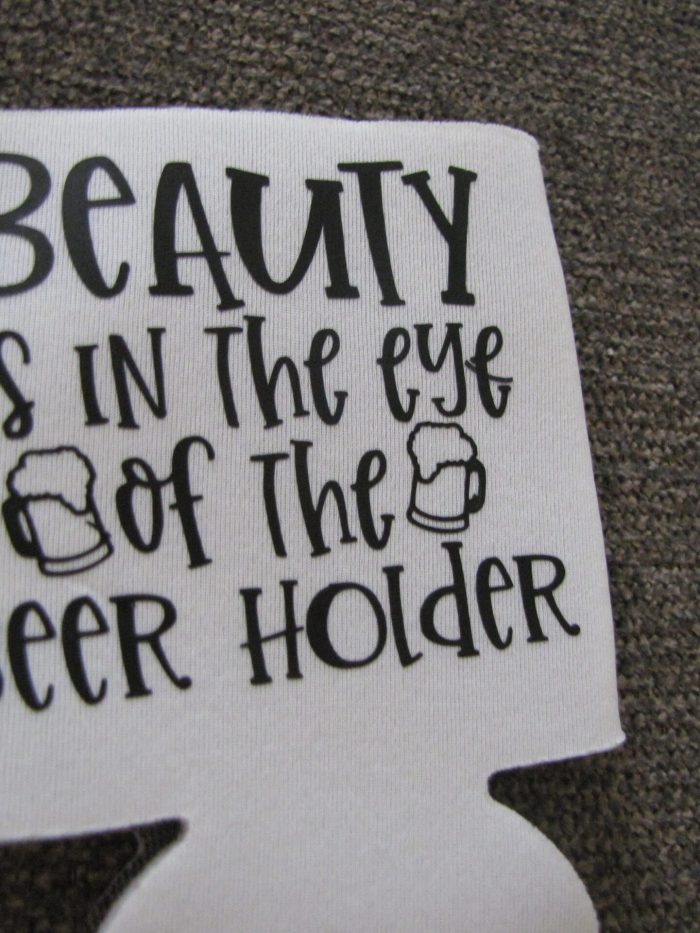 BeAUTY
s IN The eye
of The
eeR HOldeR